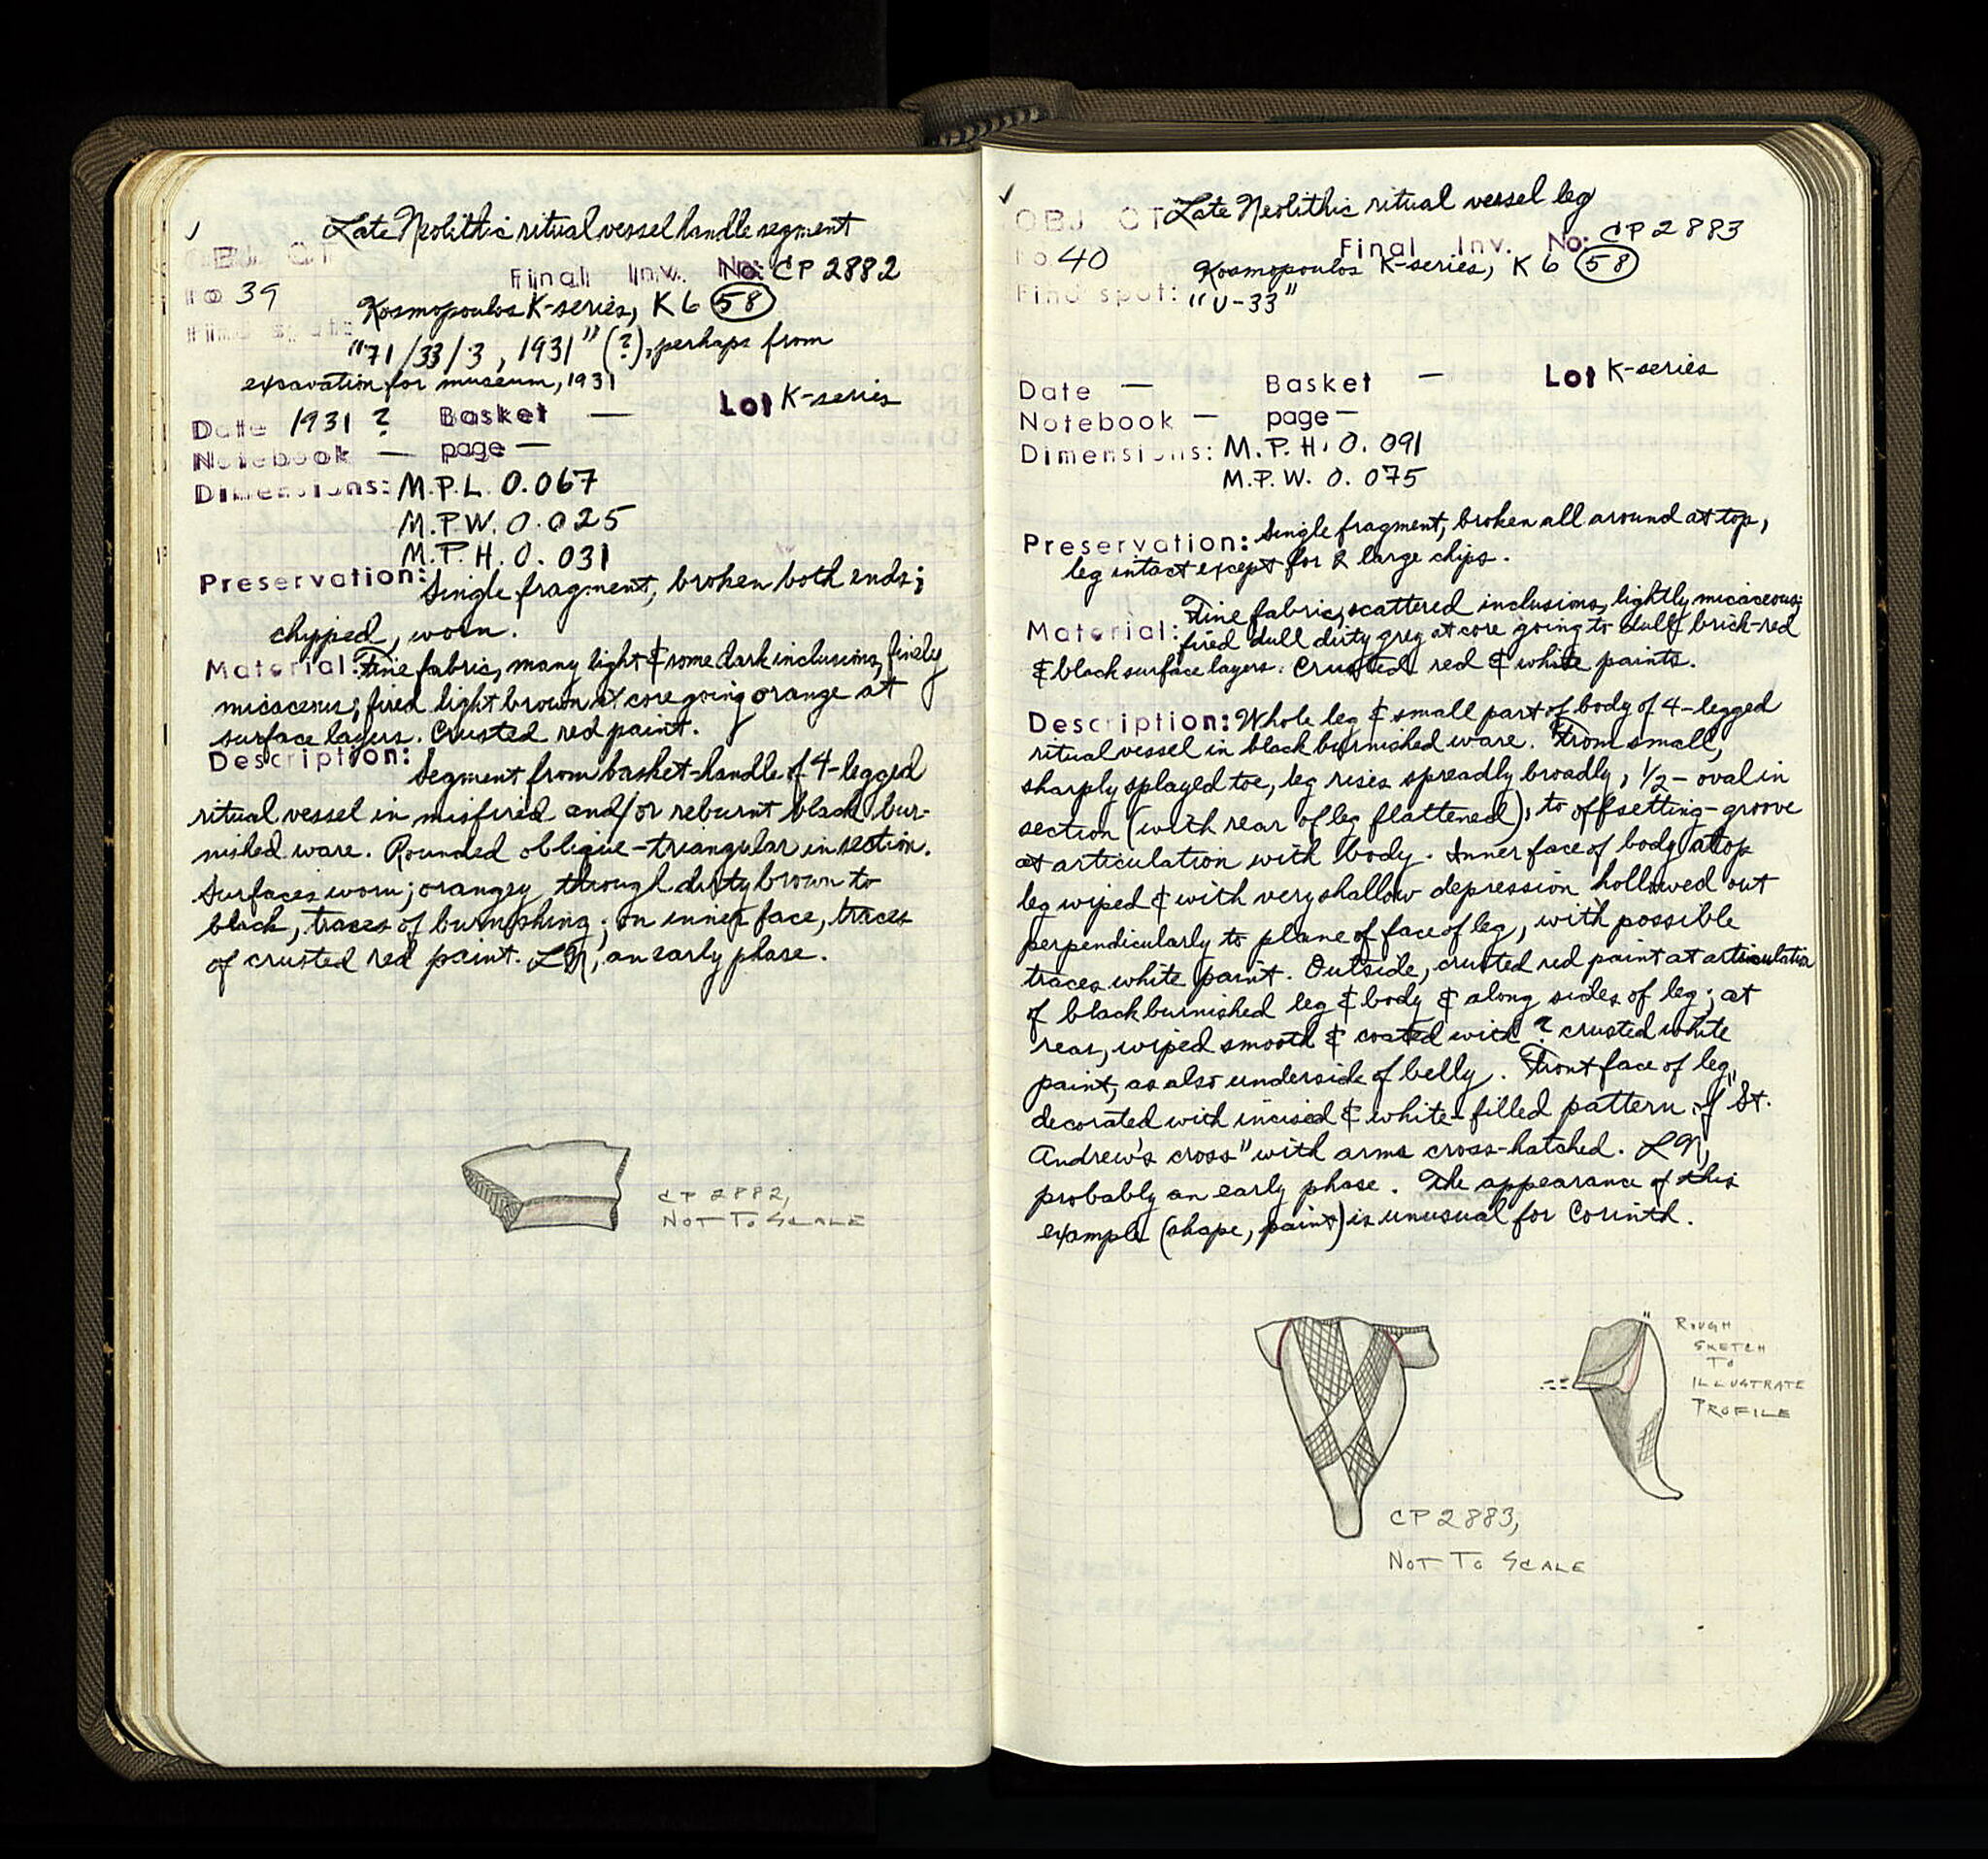 ✓
Late Neolithic ritual vessel handle segment
OBJ CT
Final Inv. No: CP 2882
no 39
Kosmopoulos K-series, K 6 (58)
Find spot:
"71/33/3, 1931" (?), perhaps from
excavation for museum, 1931
Date 1931 ? Basket — Lot K-series
Notebook — page —
Dimensions: M.P.L. 0.067
M.P.W. 0.025
M.P.H. 0.031
Preservation: Single fragment, broken both ends;
chipped, worn.
Material: Fine fabric, many light & some dark inclusions, finely
micaceous; fired light brown at core going orange at
surface layers. Crusted red paint.
Description: Segment from basket-handle of 4-legged
ritual vessel in misfired and/or reburnt black bur-
nished ware. Rounded oblique-triangular in section.
Surfaces worn; orangey through dirty brown to
black, traces of burnishing; on inner face, traces
of crusted red paint. LN, an early phase.
CP 2882,
NOT TO SCALE
✓
Late Neolithic ritual vessel leg
OBJ CT
Final Inv. No: CP 2883
no 40
Kosmopoulos K-series, K 6 (58)
Find spot: "U-33"
Date — Basket — Lot K-series
Notebook — page —
Dimensions: M.P.H. 0.091
M.P.W. 0.075
Preservation: Single fragment, broken all around at top,
leg intact except for 2 large chips.
Material: Fine fabric, scattered inclusions, lightly micaceous;
fired dull dirty grey at core going to dull brick-red
& black surface layers. Crusted red & white paints.
Description: Whole leg & small part of body of 4-legged
ritual vessel in black burnished ware. From small,
sharply splayed toe, leg rises spreadly broadly, 1/2-oval in
section (with rear of leg flattened), to offsetting-groove
at articulation with body. Inner face of body atop
leg wiped & with very shallow depression hollowed out
perpendicularly to plane of face of leg, with possible
traces white paint. Outside, crusted red paint at articulation
of black burnished leg & body & along sides of leg; at
rear, wiped smooth & coated with ? crusted white
paint, as also underside of belly. Front face of leg,
decorated with incised & white-filled pattern of "St.
Andrew's cross" with arms cross-hatched. LN,
probably an early phase. The appearance of this
example (shape, paint) is unusual for Corinth.
ROUGH
SKETCH
TO
ILLUSTRATE
PROFILE
CP 2883,
NOT TO SCALE